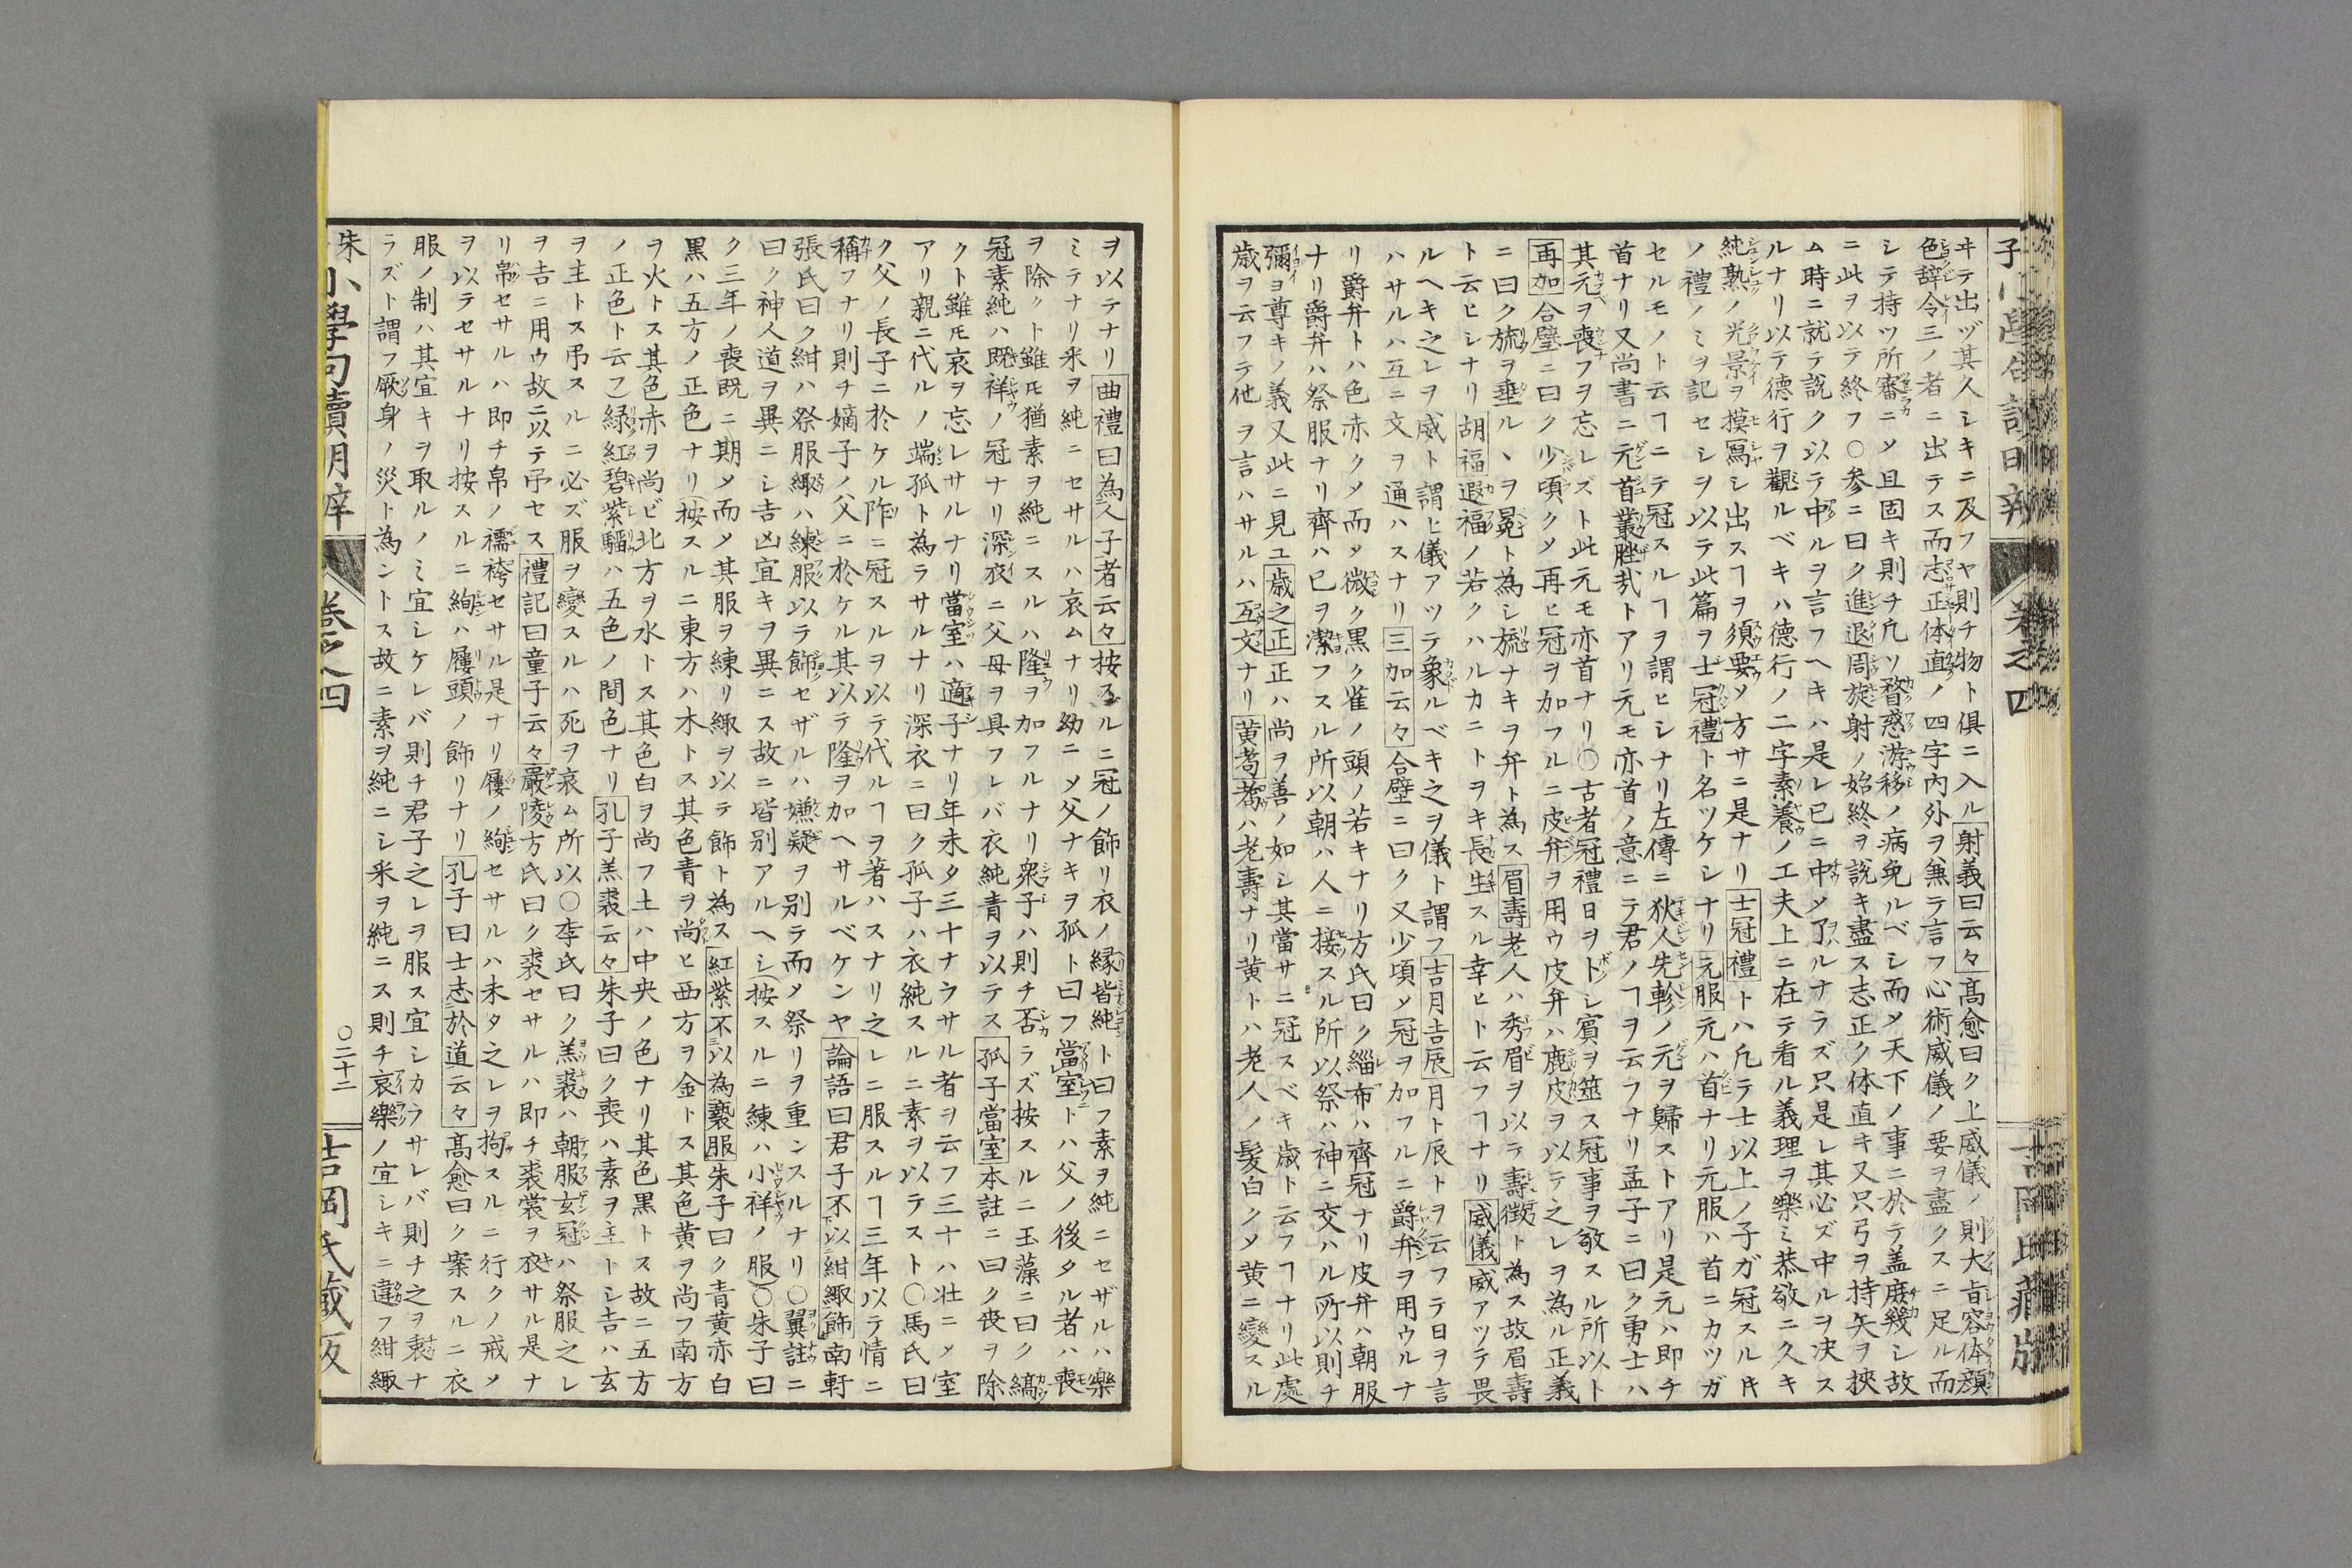 ヰテ出ヅ其久シキニ及フヤ則チ物ト俱ニ入ル射義曰云々髙愈曰ク上威儀ノ則大旨容体顔
色辞令三ノ者ニ出テス而志正体直ノ四字內外ヲ兼テ言フ心術威儀ノ要ヲ盡クスニ足ル而
シテ持ツ所審ニメ且固キ則チ凢ソ瞀惑游移ノ病免ルベシ而メ天下ノ事ニ於テ盖庻幾シ故
ニ此ヲ以テ終フ〇参ニ曰ク進退周旋射ノ始終ヲ説キ盡ス志正ク体直キ又只弓ヲ持矢ヲ挾
ム時ニ就テ說ク以テ中ルヲ言フヘキハ是レ已ニ中メ了ルナラズ只是レ其必ズ中ルヲ决ス
ルナリ以テ德行ヲ觀ルベキハ德行ノ二字素養ノ工夫上ニ在テ看ル義理ヲ樂ミ恭敬ニ久キ
純熟ノ光景ヲ摸寫シ出スヿヲ須要ソ方サニ是ナリ士冠禮トハ凢テ士以上ノ子ガ冠スル𪜈
ノ禮ノミヲ記セシヲ以テ此篇ヲ士冠禮ト名ツケシナリ元服元ハ首ナリ元服ハ首ニカツガ
セルモノト云ヿニテ冠スルヿヲ謂ヒシナリ左傳ニ狄人先軫ノ元ヲ歸ストアリ是元ハ即チ
首ナリ又尚書ニ元首叢脞㢤トアリ元モ亦首ノ意ニテ君ノヿヲ云フナリ孟子ニ曰ク勇士ハ
其元ヲ喪フヲ忘レズト此元モ亦首ナリ〇古者冠禮日ヲトシ賓ヲ筮ス冠事ヲ敬スル所以ト
再加合璧ニ曰ク少頃クメ再ヒ冠ヲ加フルニ皮弁ヲ用ウ皮弁ハ鹿皮ヲ以テ之レヲ為ル正義
ニ曰ク旒ヲ垂ルヽヲ冕ト為シ旒ナキヲ弁ト為ス眉壽老人ハ秀眉ヲ以テ壽徴ト為ス故眉壽
ト云ヒシナリ胡福遐福ノ若クハルカニトヲキ長生スル幸ヒト云フヿナリ威儀威アツテ畏
ルヘキ之レヲ威ト謂ヒ儀アツテ象ルベキ之ヲ儀ト謂フ吉月吉辰月ト辰トヲ云フテ日ヲ言
ハサルハ互ニ文ヲ通ハスナリ三加云々合璧ニ曰ク又少頃メ冠ヲ加フルニ爵弁ヲ用ウルナ
リ爵弁トハ色赤クメ而メ微ク黒ク雀ノ頭ノ若キナリ方氏曰ク緇布ハ齊冠ナリ皮弁ハ朝服
ナリ爵弁ハ祭服ナリ齊ハ已ヲ潔フスル所以朝ハ人ニ接スル所以祭ハ神ニ交ハル所以則チ
彌ヨ尊キノ義又此ニ見ユ歳之正正ハ尚ヲ善ノ如シ其當サニ冠スベキ歳ト云フヿナリ此處
歳ヲ云フテ他ヲ言ハサルハ互文ナリ黄耇耇ハ老壽ナリ黄トハ老人ノ髪白クメ黄ニ變スル
ヲ以テナリ曲禮曰為人子者云々按スルニ冠ノ飾リ衣ノ縁皆純ト曰フ素ヲ純ニセザルハ樂
ミテナリ釆ヲ純ニセサルハ哀ムナリ幼ニメ父ナキヲ孤ト曰フ當室トハ父ノ後タル者ハ喪
ヲ除クト雖モ猶素ヲ純ニスルハ隆ヲ加フルナリ衆子ハ則チ否ラズ按スルニ玉藻ニ曰ク縞
冠素純ハ既祥ノ冠ナリ深衣ニ父母ヲ具フレバ衣純青ヲ以テス孤子當室本註ニ曰ク喪ヲ除
クト雖モ哀ヲ忘レサルナリ當室ハ適子ナリ年未タ三十ナラサル者ヲ云フ三十ハ壮ニメ室
アリ親ニ代ルノ端孤ト為ラサルナリ深衣ニ曰ク孤子ハ衣純スルニ素ヲ以テスト〇馬氏曰
ク父ノ長子ニ於ケル阼ニ冠スルヲ以テ代ルヿヲ著ハスナリ之レニ服スルヿ三年以テ情ニ
稱フナリ則チ嫡子ノ父ニ於ケル其以テ隆ヲ加ヘサルベケンヤ論語曰君子不以紺緅飾南軒
張氏曰ク紺ハ祭服緅ハ練服以テ飾セザルハ嫌疑ヲ別テ而メ祭リヲ重ンスルナリ〇翼註ニ
曰ク神人道ヲ異ニシ吉凶宜キヲ異ニス故ニ皆別アルヘシ(按スルニ練ハ小祥ノ服)〇朱子曰
ク三年ノ喪既ニ期メ而メ其服ヲ練リ緅ヲ以テ飾ト為ス紅紫不以為褻服朱子曰ク青黄赤白
黒ハ五方ノ正色ナリ(按スルニ東方ハ木トス其色青ヲ尚ヒ西方ヲ金トス其色黄ヲ尚フ南方
ヲ火トス其色赤ヲ尚ビ北方ヲ水トス其色白ヲ尚フ土ハ中央ノ色ナリ其色黒トス故ニ五方
ノ正色ト云フ)緑紅碧紫騮ハ五色ノ間色ナリ孔子羔裘云々朱子曰ク喪ハ素ヲ主トシ吉ハ玄
ヲ主トス弔スルニ必ズ服ヲ變スルハ死ヲ哀ム所以〇李氏曰ク羔裘ハ朝服玄冠ハ祭服之レ
ヲ吉ニ用ウ故ニ以テ弔セス禮記曰童子云々嚴陵方氏曰ク裘セサルハ即チ裘裳ヲ衣サル是ナ
リ帛セサルハ即チ帛ノ襦袴セサル是ナリ屨ノ絢セサルハ未タ之レヲ拘スルニ行クノ戒メ
ヲ以テセサルナリ按スルニ絢ハ屨頭ノ飾リナリ孔子曰士志於道云々髙愈曰ク案スルニ衣
服ノ制ハ其宜キヲ取ルノミ宜シケレバ則チ君子之レヲ服ス宜シカラサレバ則チ之ヲ衷ナ
ラズト謂フ厥身ノ災ト為ントス故ニ素ヲ純ニシ釆ヲ純ニス則チ哀樂ノ宜シキニ違フ紺緅
朱 小學句讀明辨 巻之四 〇二十二 吉岡氏藏板